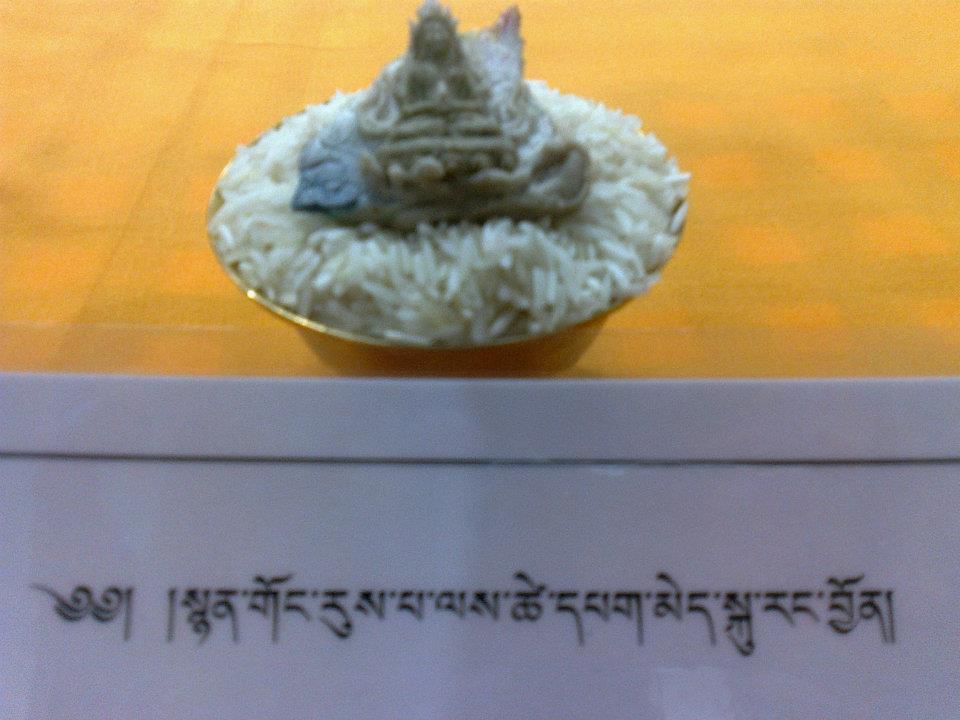 ༄༅། །སྙན་གོང་རུས་པ་ལས་ཚེ་དཔག་མེད་སྐུ་རང་བྱོན།